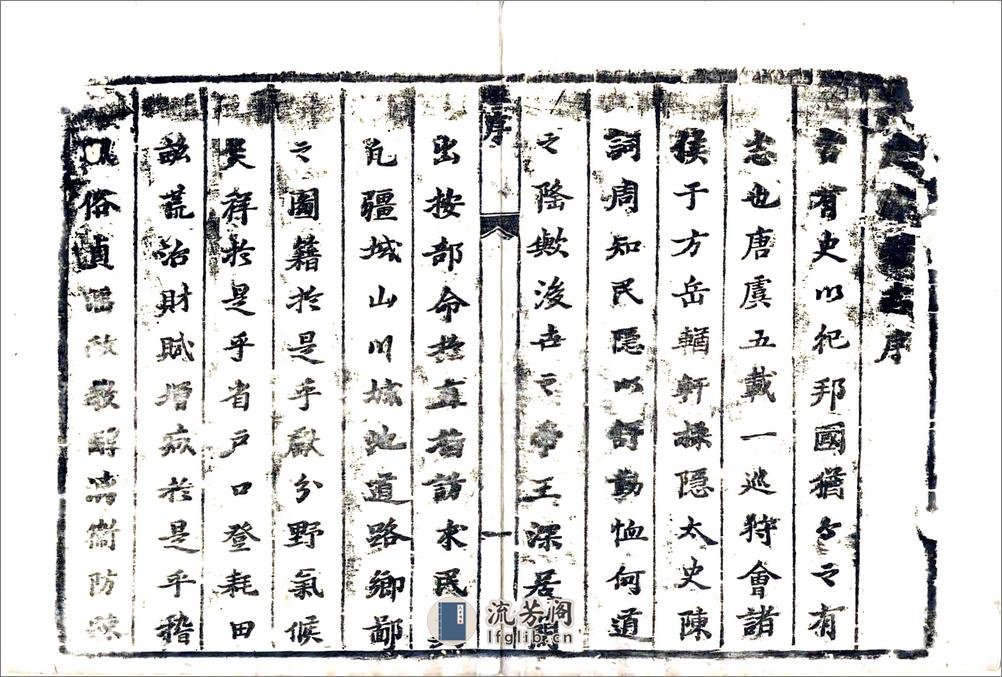 序
古有史以祀邦國猶今之有
志也唐虞五載一巡狩會諸
侯于方岳輶軒採隱太史陳
詞周知民隱以訏勤恤何道
之隆歟後世之帝王深居
序
一
出按部命控直指訪求民
凡疆域山川城池道路鄉鄙
之圖籍於是乎獻分野氣候
災祥於是乎省戶口登耗田
畝荒治財賦增減於是乎稽
俗貞淫政教防
流芳阁
lfglib.cn